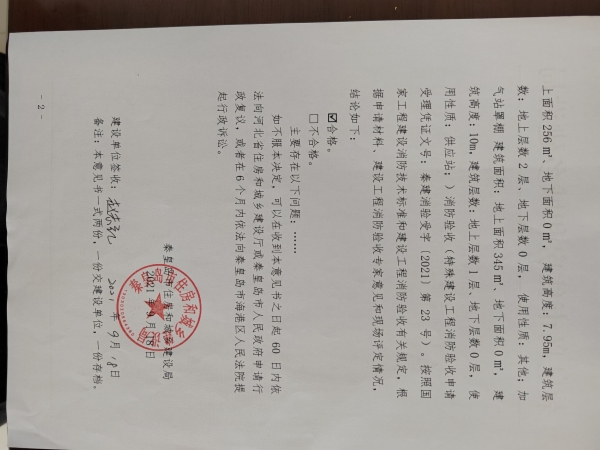 上面积256㎡、地下面积0㎡，建筑高度：7.95m，建筑层
数：地上层数2层、地下层数0层，使用性质：其他；加
气站罩棚 建筑面积：地上面积345㎡、地下面积0㎡，建
筑高度：10m，建筑层数：地上层数1层、地下层数0层，使
用性质：供应站；）消防验收（特殊建设工程消防验收申请
受理凭证文号：秦建消验受字（2021）第23号）。按照国
家工程建设消防技术标准和建设工程消防验收有关规定，根
据申请材料、建设工程消防验收专家意见和现场评定情况，
结论如下：
☑合格。
□不合格。
主要存在以下问题：……
如不服本决定，可以在收到本意见书之日起60日内依
法向河北省住房和城乡建设厅或秦皇岛市人民政府申请行
政复议，或者在6个月内依法向秦皇岛市海港区人民法院提
起行政诉讼。
秦皇岛市住房和城乡建设局
2021年9月18日
建设单位签收：
2021年9月18日
备注：本意见书一式两份，一份交建设单位，一份存档。
- 2 -